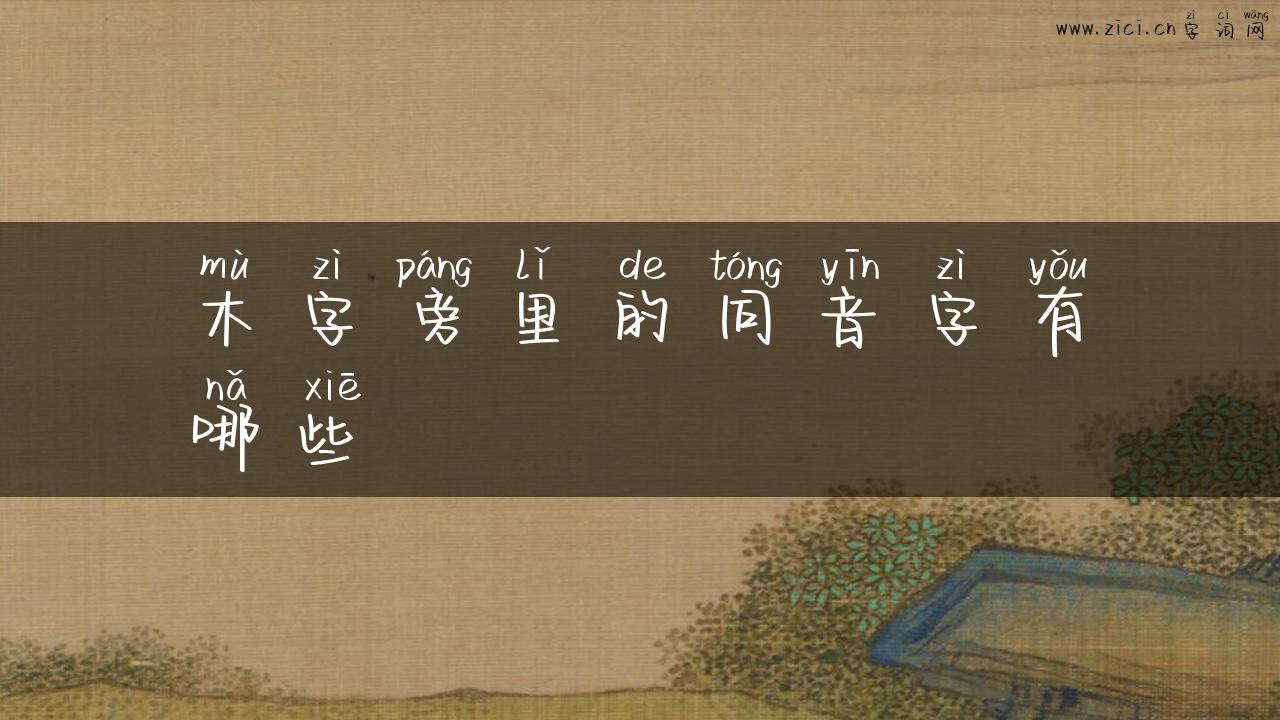 zì cí wǎng
www.zici.cn 字词网
mù zì páng lǐ de tóng yīn zì yǒu
木字旁里的同音字有
nǎ xiē
哪些